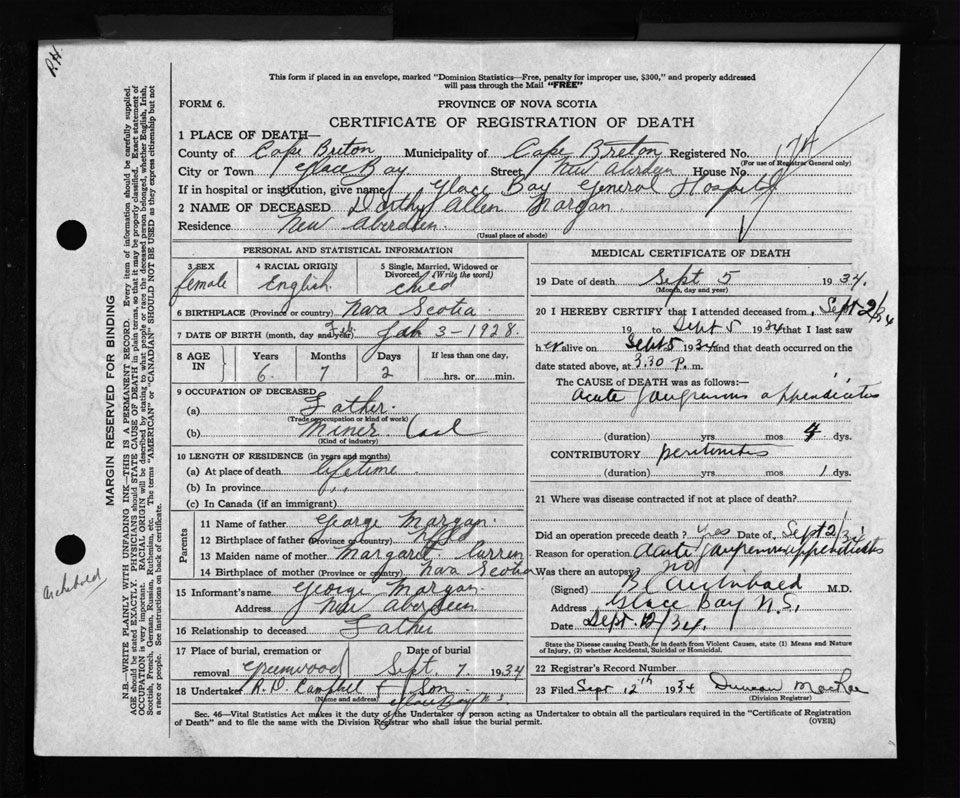 R.H.
This form if placed in an envelope, marked "Dominion Statistics—Free, penalty for improper use, $300," and properly addressed
will pass through the Mail "FREE"
FORM 6.
PROVINCE OF NOVA SCOTIA
CERTIFICATE OF REGISTRATION OF DEATH
1 PLACE OF DEATH—
County of Cape Breton Municipality of Cape Breton Registered No. 174
(For use of Registrar General only)
City or Town Glace Bay Street New Aberdeen House No.
If in hospital or institution, give name Glace Bay General Hospital
2 NAME OF DECEASED Dorthy Allen Morgan
Residence New Aberdeen
(Usual place of abode)
PERSONAL AND STATISTICAL INFORMATION
3 SEX female
4 RACIAL ORIGIN English
5 Single, Married, Widowed or Divorced (Write the word) Child
6 BIRTHPLACE (Province or country) Nova Scotia
7 DATE OF BIRTH (month, day and year) 3-1928
8 AGE IN Years Months Days If less than one day,
6 7 2 hrs. or min.
9 OCCUPATION OF DECEASED
(a) Father
(Trade occupation or kind of work)
(b) Miner Coal
(Kind of industry)
10 LENGTH OF RESIDENCE (in years and months)
(a) At place of death lifetime
(b) In province " "
(c) In Canada (if an immigrant)
Parents
11 Name of father George Morgan
12 Birthplace of father (Province or country) Nfld
13 Maiden name of mother Margaret Curren
14 Birthplace of mother (Province or country) Nova Scotia
15 Informant's name George Morgan
Address New Aberdeen
16 Relationship to deceased Father
17 Place of burial, cremation or removal Greenwood
Date of burial Sept. 7 1934
18 Undertaker A. D. Campbell & Son
(Name and address) Glace Bay N S
MEDICAL CERTIFICATE OF DEATH
19 Date of death Sept 5 1934
(Month, day and year)
20 I HEREBY CERTIFY that I attended deceased from Sept 2/34
19 to Sept 5 1934 that I last saw
her alive on Sept 5 1934 and that death occurred on
date stated above, at 3.30 P. m.
The CAUSE OF DEATH was as follows:—
Acute Gangrenous appendicitis
(duration) yrs mos 4 dys.
CONTRIBUTORY peritonitis
(duration) yrs mos 1 dys.
21 Where was disease contracted if not at place of death?
Did an operation precede death? Yes Date of Sept 2/34
Reason for operation Acute Gangrenous appendicitis
Was there an autopsy? no
(Signed) B. Archibald M.D.
Address Glace Bay N.S.
Date Sept. 12/34.
State the Disease causing Death, or in death from Violent Causes, state (1) Means and Nature
of Injury, (2) whether Accidental, Suicidal or Homicidal.
22 Registrar's Record Number
23 Filed Sept 12th 1934 Duncan MacRae
(Division Registrar)
Sec. 46—Vital Statistics Act makes it the duty of the Undertaker or person acting as Undertaker to obtain all the particulars required in the "Certificate of Registration
of Death" and to file the same with the Division Registrar who shall issue the burial permit.
(OVER)
MARGIN RESERVED FOR BINDING
N.B.—WRITE PLAINLY WITH UNFADING INK—THIS IS A PERMANENT RECORD. Every item of information should be carefully supplied.
AGE should be stated EXACTLY. PHYSICIANS should STATE CAUSE OF DEATH in plain terms, so that it may be properly classified. Exact statement of
OCCUPATION is very important. RACIAL ORIGIN will be described by stating to what people or race the deceased person belonged, whether English, Irish,
Scottish, French, German, Russian, Ruthenian, etc. The terms "AMERICAN" or "CANADIAN" SHOULD NOT BE USED as they express citizenship but not
a race or people. See instructions on back of certificate.
Archibald